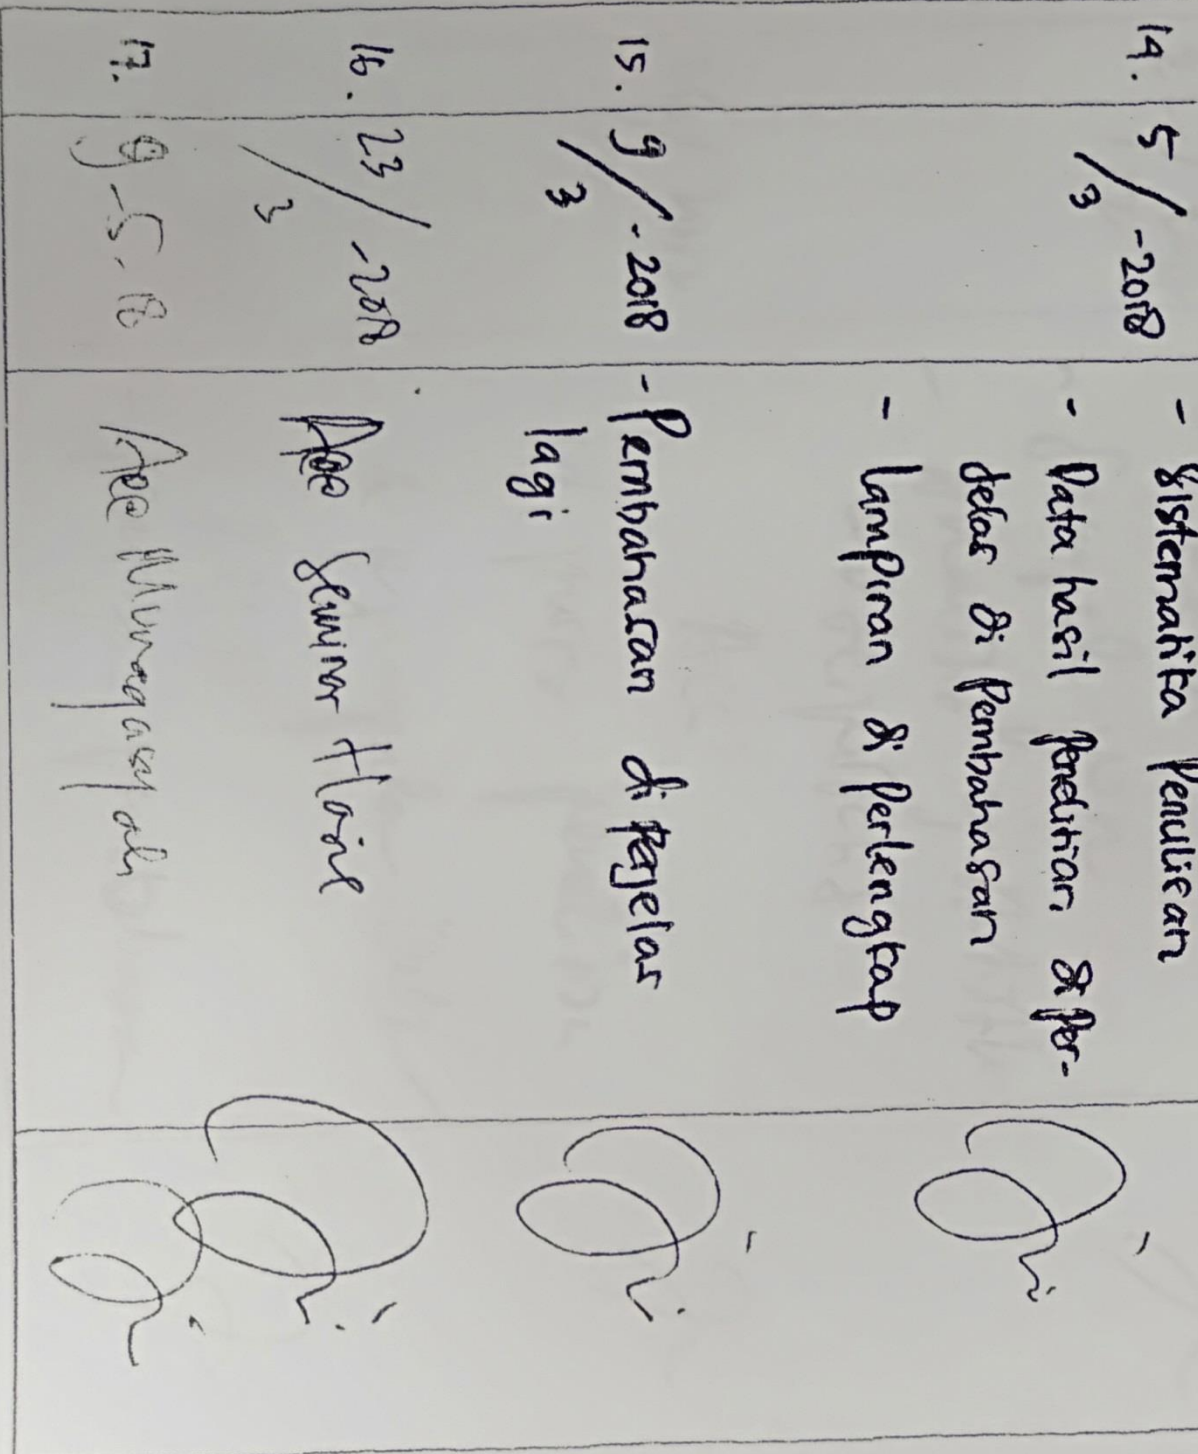 14. 5/3-2018 - Sistematika Penulisan
- Data hasil Penelitian di Per-
jelas di Pembahasan
- Lampiran di Perlengkap
15. 9/3-2018 - Pembahasan di Perjelas
lagi
16. 23/3-2018 Acc Seminar Hasil
17. 9-5-18 Acc Munaqasyah